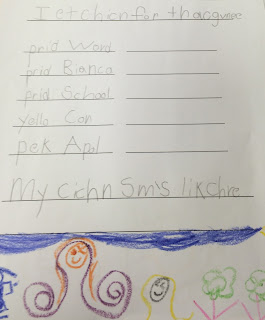 I etchon for thacguvee
prid Word
prid Bianca
prid School
Yello Can
pek Apl
My cichn Sm's lik chre